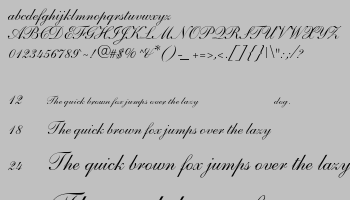 abcdefghijklmnopqrstuvwxyz
ABCDEFGHIJKLMNOPQRSTUVWXYZ
0123456789
12 The quick brown fox jumps over the lazy dog.
18 The quick brown fox jumps over the lazy
24 The quick brown fox jumps over the lazy